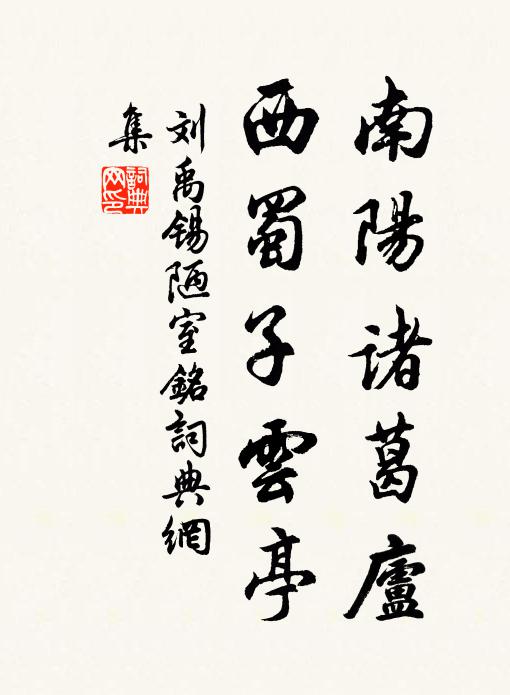 南陽諸葛廬
西蜀子雲亭
刘禹锡陋室銘詞典網
集
詞典网印